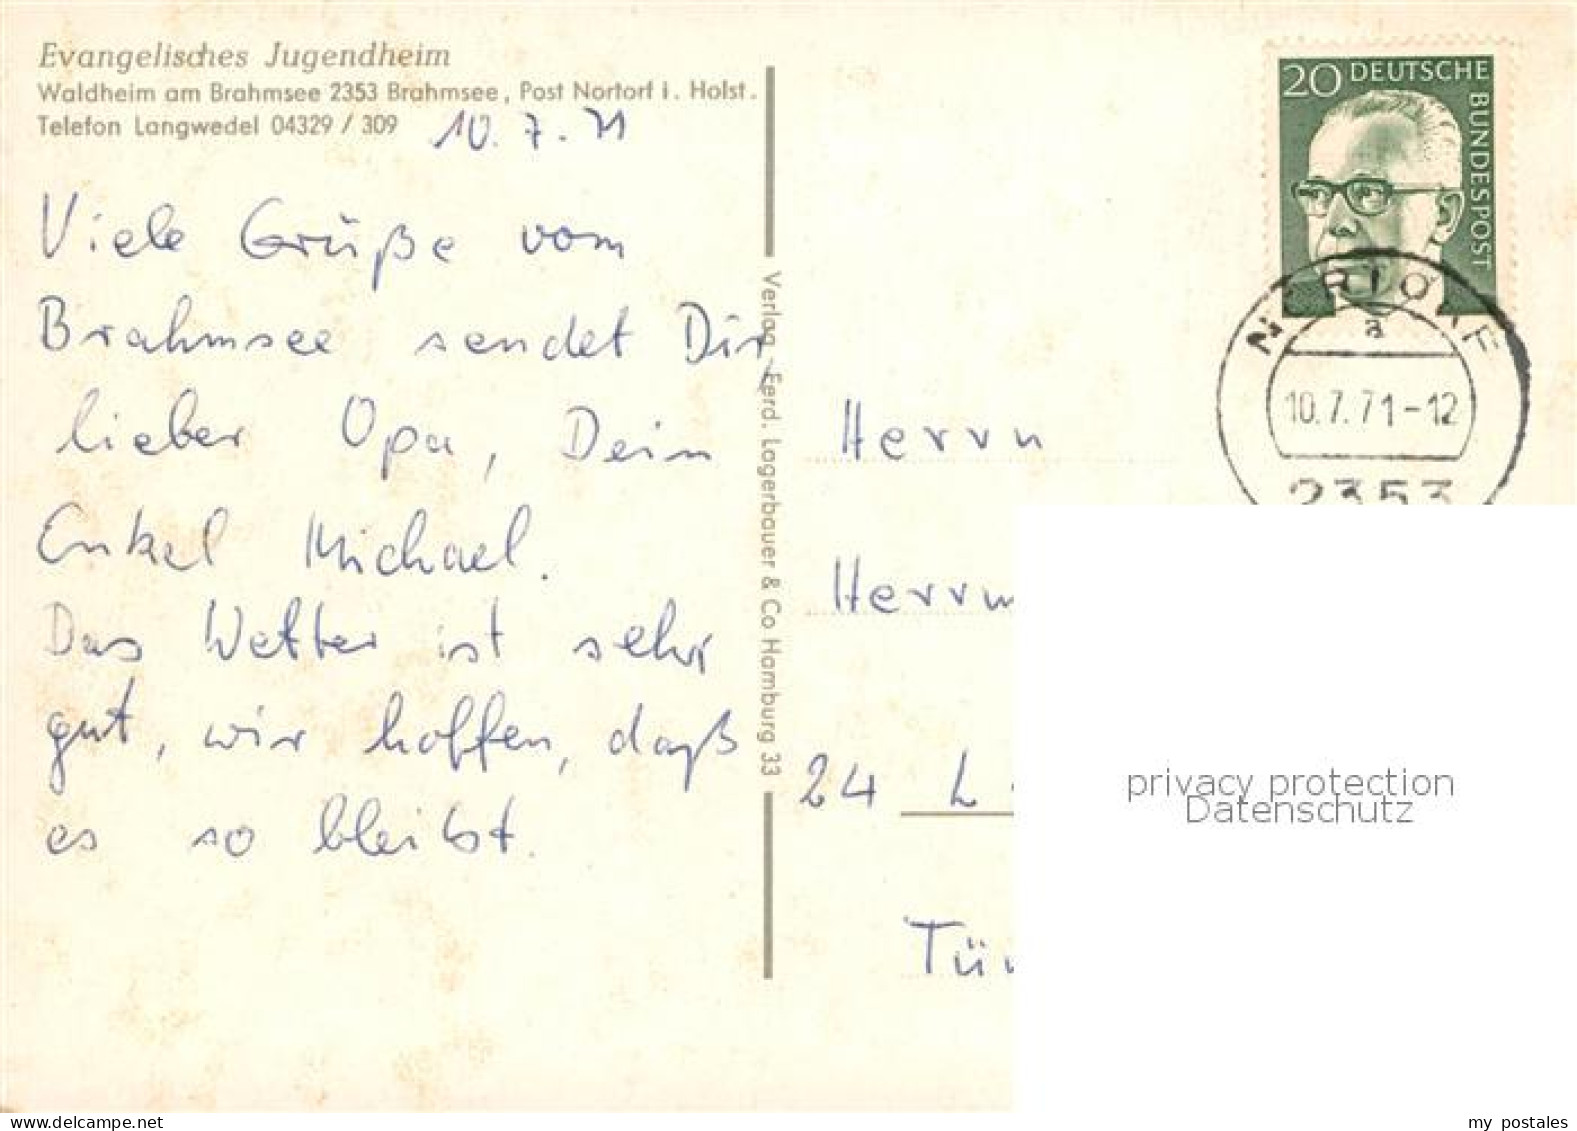 Evangelisches Jugendheim
Waldheim am Brahmsee 2353 Brahmsee, Post Nortorf i. Holst.
Telefon Langwedel 04329 / 309
10. 7. 71
Viele Grüße vom
Brahmsee sendet Dir,
lieber Opa, Dein
Enkel Michael.
Das Wetter ist sehr
gut, wir hoffen, daß
es so bleibt.
Verlag Ferd. Lagerbauer & Co Hamburg 33
20 DEUTSCHE
BUNDESPOST
NORTORF
a
10.7.71-12
2353
Herrn
24 L
privacy protection
Datenschutz
www.delcampe.net
my_postales